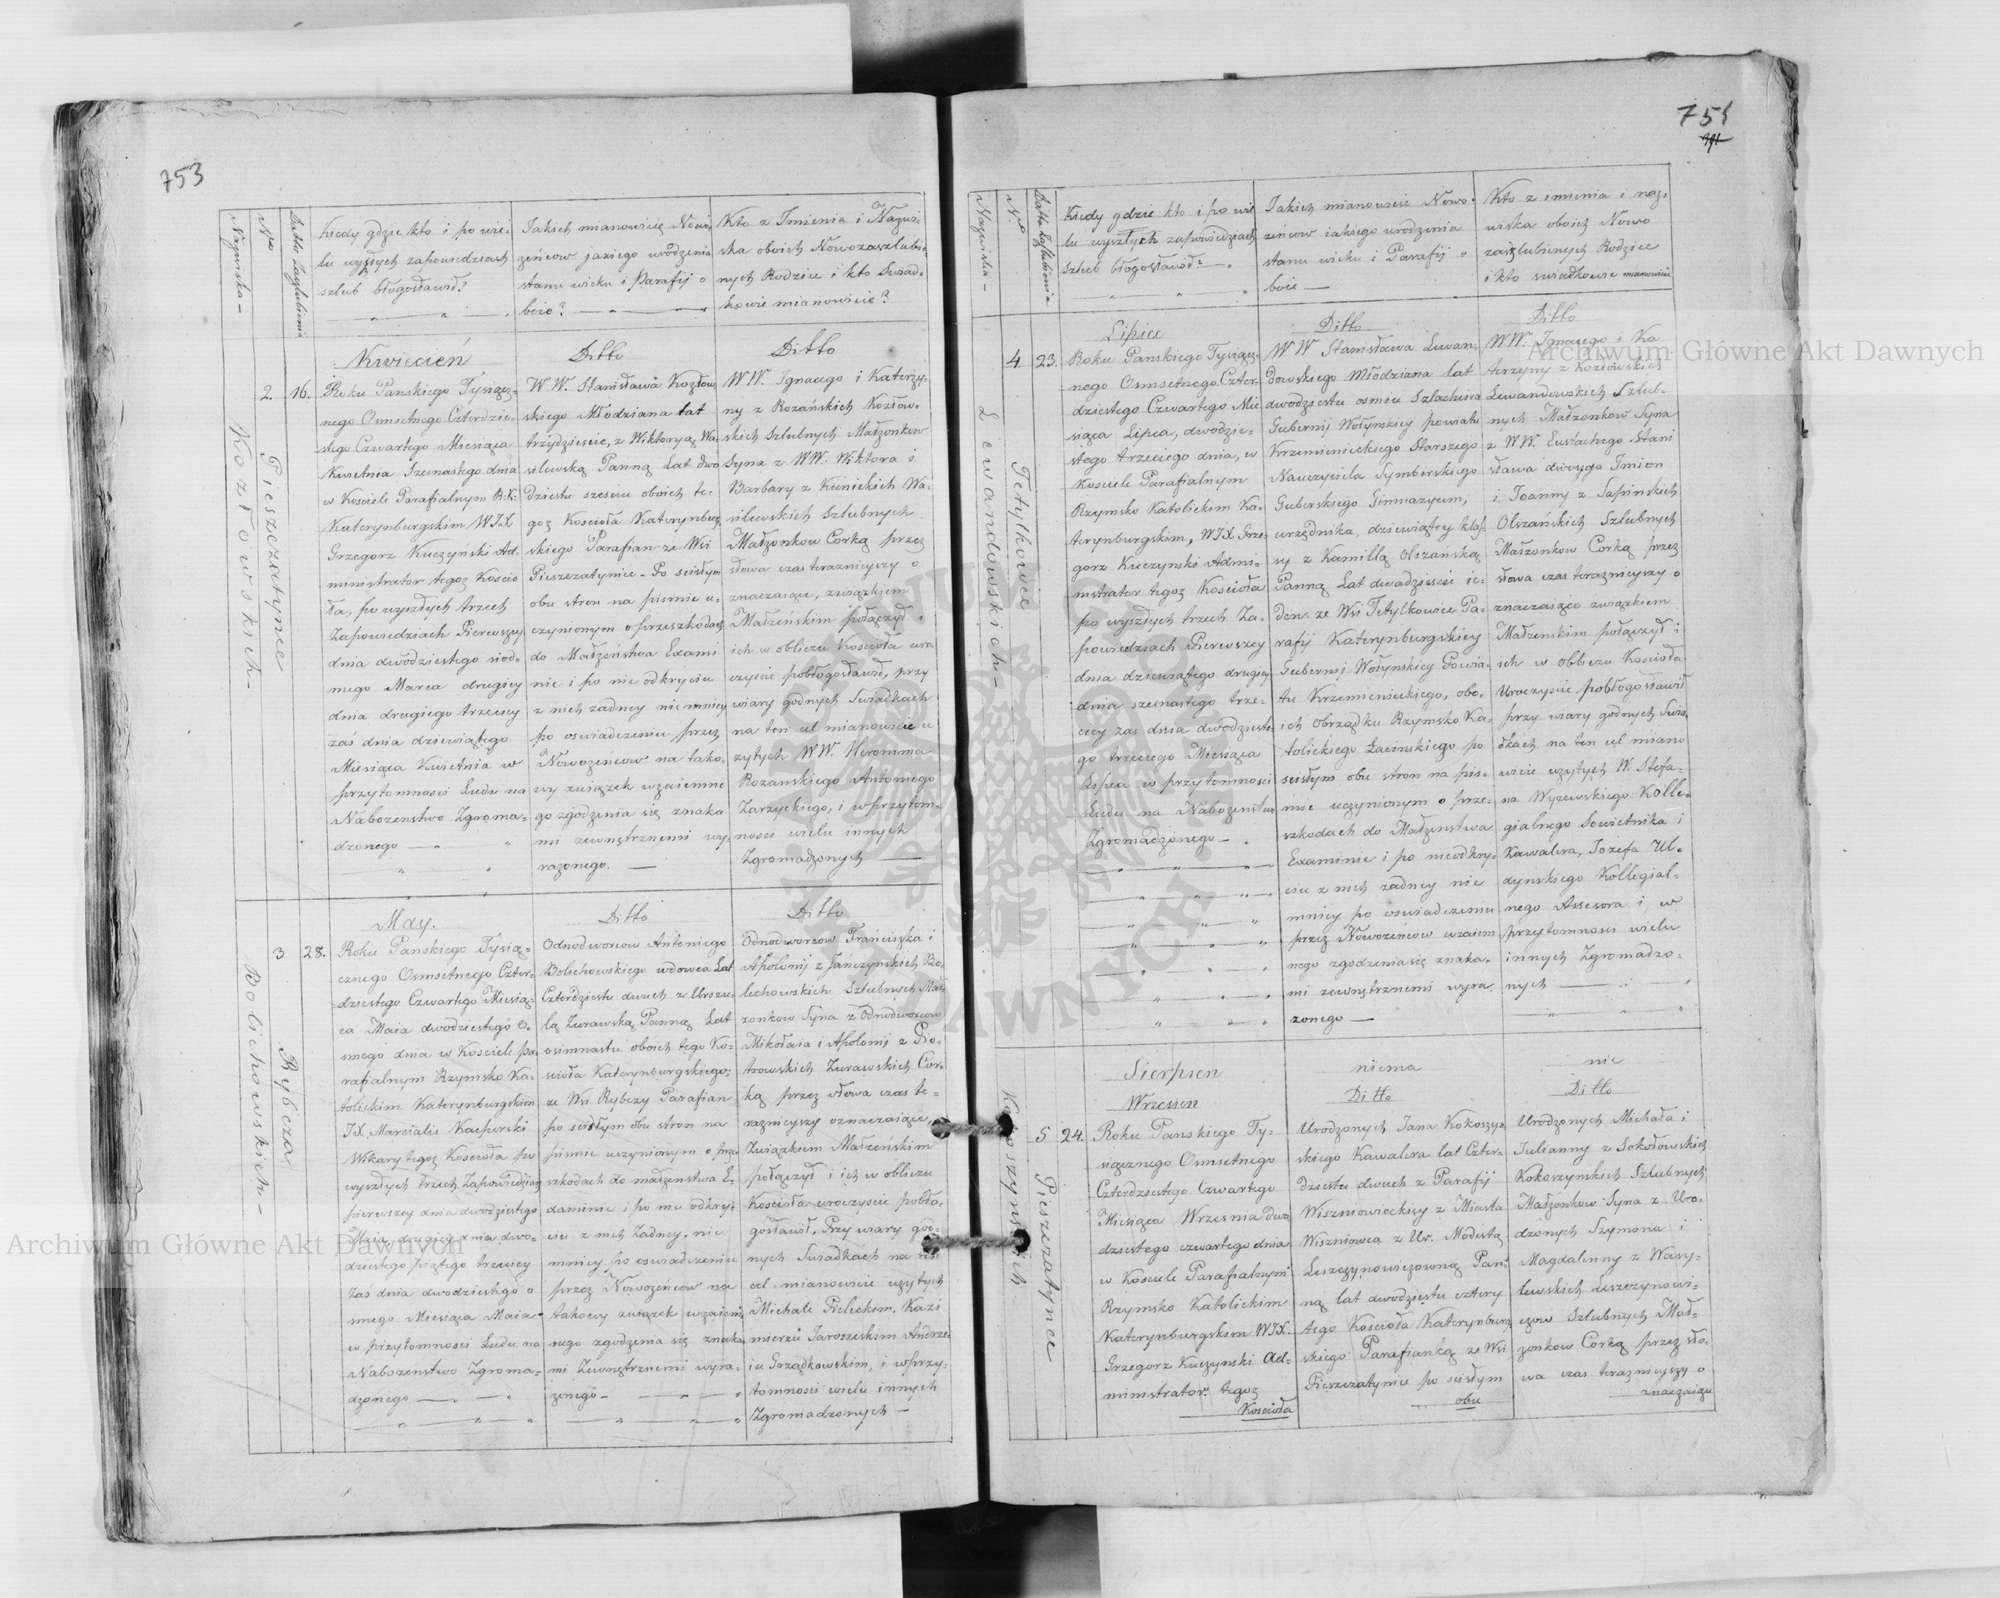 753
Nazwiska –
Nro
Datta Zaszlubienia
Kiedy gdzie kto i po wie-
lu wyszłych zapowiedziach
szlub błogosławił?
Jakich mianowicie Nowo
żeńcow jakiego urodzenia
stanu wieku i Parafij o
boie?
Kto z Imienia i Nazwi-
ska oboich Nowozaszlubio
nych Rodzice i kto Swiad-
kowie mianowicie?
Kozłowskich –
Pieszczatynce
2.
16.
Kwiecień
Roku Pańskiego Tysiącz-
nego Osmsetnego Czterdzie-
stego Czwartego Miesiąca
Kwietnia Szesnastego dnia
w Kosciele Parafialnym R: K:
Katerynburgskim WJX
Grzegorz Kuczyński Ad-
ministrator tegoż Koscio
ła, po wyszłych trzech
Zapowiedziach Pierwszey
dnia dwódziestego siod-
mego Marca drugiey
dnia drugiego trzeciey
zaś dnia dziewiątego
Miesiąca Kwietnia w
przytomnosci Ludu na
Nabozenstwo Zgroma-
dzonego —
Ditto
W W. Stanisława Kozłow
skiego Młodziana lat
trzydziescie, z Wiktoryą Wa
silewską Panną Lat dwa
dziestu szesciu oboich te-
goż Kościoła Katerynburg
skiego Parafian ze Wsi
Pieszczatyniec – Po scisłym
obu stron na pismie u-
czynionym o przeszkodach
do Małżeństwa Exami
nie i po nie odkryciu
z nich zadney niemniey
po oswiadczeniu przez
Nowożeńcow na tako-
wy związek wzaiemne
go zgodzenia się znaka
mi zewnętrznemi wy-
rażonego. —
Ditto
W W. Ignacego i Katerzy-
ny z Rozańskich Kozłow-
skich Szlubnych Małżonkow
Syna z WW: Wiktora i
Barbary z Kunickich Wa-
silewskich Szlubnych
Małżonkow Corką przez
słowa czas teraznieyszy o
znaczaiące, związkiem
Małżeńskim połączył i
ich w obliczu Kościoła uro
czyście pobłogosławił, przy
wiary godnych Swiadkach
na ten cel mianowicie u
żytych WW. Heronima
Rozanskiego Antoniego
Zarzyckiego, i w przytom-
nosci wielu innych
Zgromadzonych —
Bolichowskich –
Rybcza
3
28.
May.
Roku Panskiego Tysią-
cznego Osmsetnego Czter-
dziestego Czwartego Miesią-
ca Maia dwodziestego o-
smego dnia w Kosciele pa-
rafialnym Rzymsko Ka-
tolickim Katerynburgskim
JX, Marcialis Kacperski
Wikary tegoż Kościoła po
wyszłych trzech Zapowiedziach
pierwszey dnia dwódziestego
Maia, drugiey dnia dwo-
dziestego piątego trzeciey
Zaś dnia dwodziestego o
smego Miesiąca Maia
w przytomnosci Ludu na
Nabozenstwo Zgroma-
dzonego —
Ditto
Odnodworcow Antoniego
Bolichowskiego wdowca Lat
Czterdziestu dwuch z Urszu-
lą Żurawską Panną Lat
osimnastu oboich tego Ko-
scioła Katerynburgskiego;
ze Wsi Rybczy Parafian
po scisłym obu stron na
piśmie uczynionym o prze
szkodach do małżenstwa E-
xaminie i po nie odkry-
ciu z nich Żadney, nie
mniey po oswiadczeniu
przez Nowożeńcow na
takowy związek wzaiem
nego zgodzenia się znaka
mi Zewnętrznemi wyra-
żonego –
Ditto
Odnodworcow Franciszka i
Apolonij z Jańczynskich Bo-
lechowskich Szlubnych Mał
żonkow Syna z Odnodworcow
Mikołaia i Apolonij z Pio-
trowskich Żurawskich Cor-
ką przez słowa czas te-
raznieyszy oznaczaiące,
Związkiem Małżeńskim
połączył i ich w obliczu
Kościoła uroczyscie pobło-
gosławił, Przy wiary god-
nych Swiadkach na ten
cel mianowicie użytych
Michale Pieleckim, Kazi
mierzu Jaroszeskim Andrze-
iu Gożądkowskim, i w przy-
tomnosci wielu innych
Zgromadzonych —
754
Nazwiska –
No
Datta Zaszlubienia
Kiedy gdzie kto i po wie
lu wyszłych zapowiedziach
szlub błogosławił? —
Jakich mianowicie Nowo
żeńcow iakiego urodzenia
stanu wieku i Parafij o
boie —
Kto z imienia i naz-
wiska oboich Nowo
zaszlubionych Rodzice
i kto swiadkowie mianowicie
Lewandowskich –
Tetylkowce
4
23.
Lipiec
Roku Panskiego Tysiącz-
nego Osmsetnego Czter-
dziestego Czwartego Mie
siąca Lipca, dwodzie-
stego trzeciego dnia, w
Kosciele Parafialnym
Rzymsko Katolickim Ka-
terynburgskim, WJX Grze-
gorz Kuczynski Admi-
nistrator tegoż Kościoła
po wyszłych trzech Za-
powiedziach Pierwszey
dnia dziewiątego drugiey
dnia szesnastego trze-
ciey zas dnia dwodzieste
go trzeciego Miesiąca
Lipca w przytomnosci
Ludu na Nabozenstwo
Zgromadzonego –
Ditto
W W Stanisława Lewan-
dowskiego Młodziana lat
dwodziestu osmiu Szlachcica
Gubernij Wołynskiey powiatu
Krzemienieckiego Starszego
Nauczyciela Symbirskiego
Guberskiego Gimnazyum,
urzędnika, dziewiątey klas-
sy z Kamillą Olszańską
Panną Lat dwadziescie ie-
den ze Wsi Tetylkowiec Pa-
rafij Katerynburgskiey
Gubernij Wołynskiey Powia-
tu Krzemienieckiego, obo-
ich obrządku Rzymsko Ka-
tolickiego Łacinskiego po
scisłym obu stron na pis-
mie uczynionym o prze-
szkodach do Małzenstwa
Examinie i po nieodkry-
ciu z nich zadney nie
mniey po oswiadczeniu
przez Nowozencow wzaiem
nego zgodzenia się znaka-
mi zewnętrznemi wyra
żonego —
Ditto
W W. Ignacego i Ka
terzyny z Kozłowskich
Lewandowskich Szlub-
nych Małżonkow Syna
z WW. Eustachego Stani
sława dwoyga Imion
i Joanny z Sapinskich
Olszańskich Szlubnych
Małżonkow Corką przez
słowa czas teraznieyszy o
znaczaiące związkiem
Małzenskim połączył i
ich w obliczu Kościoła
Uroczyscie pobłogosławił
przy wiary godnych Swia
dkach na ten cel miano
wicie użytych W. Stefa-
na Wyzewskiego Kolle-
gialnego Sowietnika i
Kawalera, Jozefa Ul-
dynskiego Kollegial-
nego Assesora i, w
przytomnosci wielu
innych Zgromadzo-
nych —
Sierpien
niema
nic
Kokoszynskich
Pieszczatynce
5
24.
Wrzesien
Roku Panskiego Ty-
siącznego Osmsetnego
Czterdziestego Czwartego
Miesiąca Wrzesnia dwo
dziestego czwartego dnia
w Kosciele Parafialnym
Rzymsko Katolickim
Katerynburgskim WJX.
Grzegorz Kuczynski Ad-
ministrator tegoz
Kościoła
Ditto
Urodzonych Jana Kokoszyn
skiego Kawalera lat Czter-
dziestu dwuch z Parafij
Wiszniowieckiey z Miasta
Wiszniowca z Ur. Modestą
Leszczynowiczowną Pan-
ną lat dwodziestu cztery
tego Kościoła Katerynburg
skiego Parafianką ze Wsi
Pieszczatyniec po scisłym
obu
Ditto
Urodzonych Michała i
Julianny z Sokołowskich
Kokoszynskich Szlubnych
Małżonkow Syna z Uro-
dzonych Szymona i
Magdalenny z Wasy-
lewskich Leszczynowi-
czow Szlubnych Mał-
żonkow Corką przez sło-
wa czas teraznieyszy o
znaczaiące
Archiwum Główne Akt Dawnych
Archiwum Główne Akt Dawnych